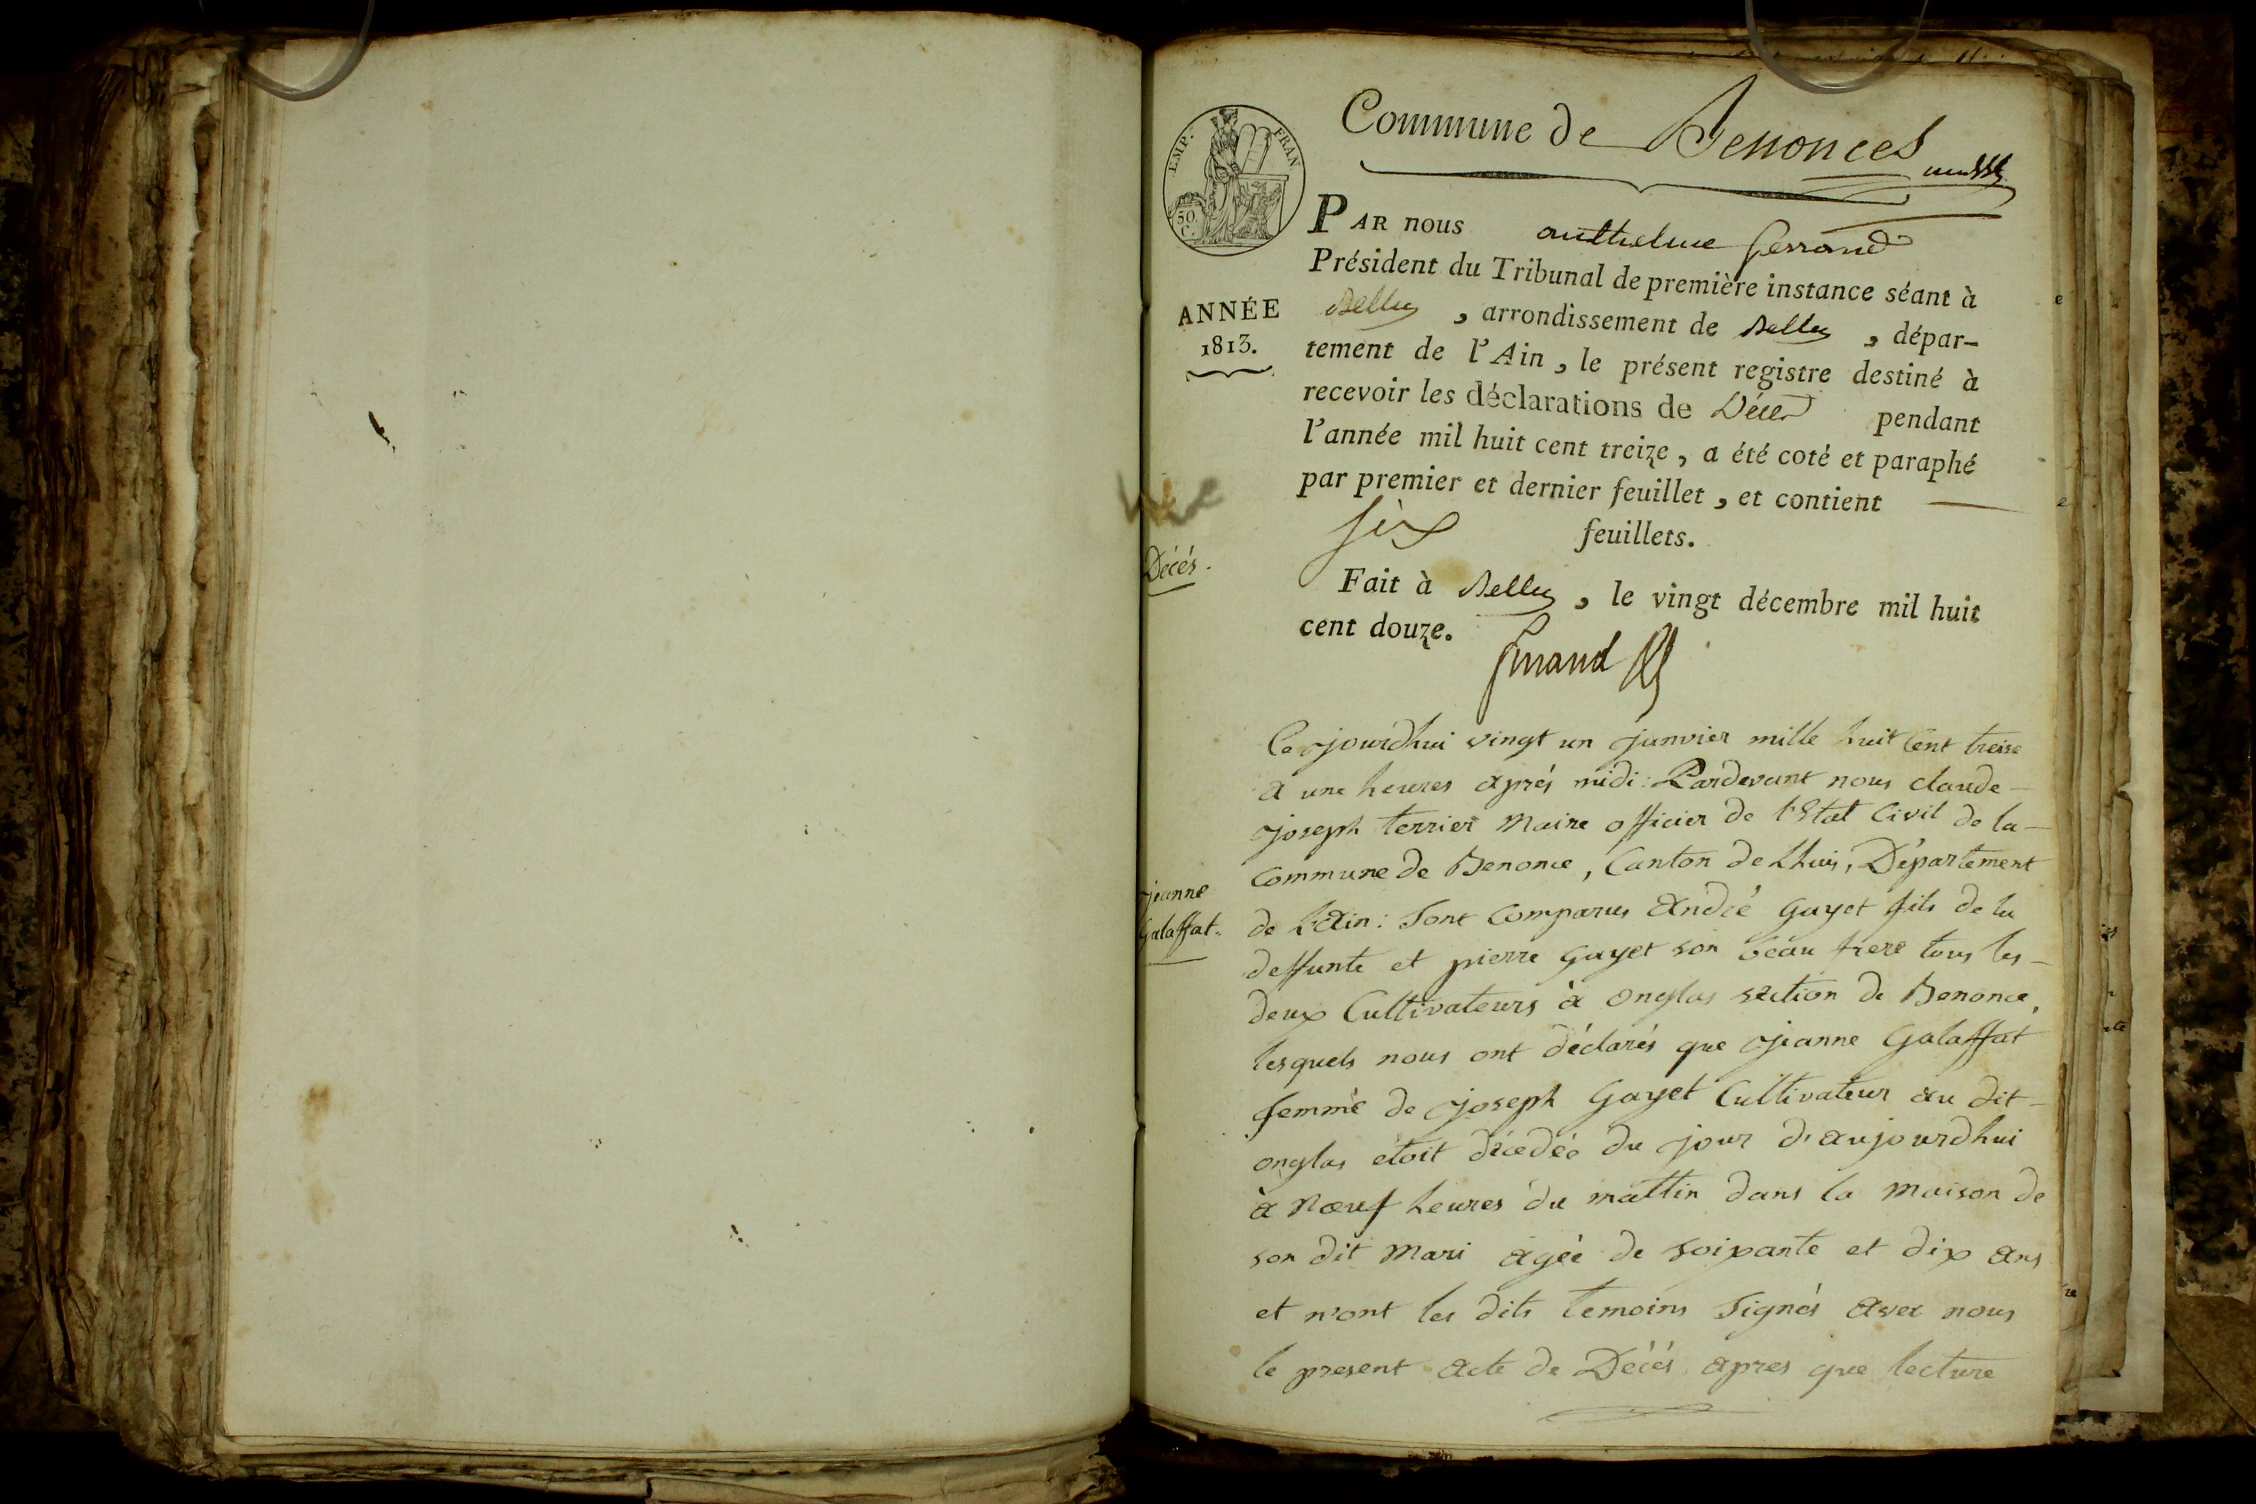 Commune de Benonces
EMP. FRAN
50 C.
PAR nous anthelme ferrand
Président du Tribunal de première instance séant à
Belley, arrondissement de Belley, dépar-
ANNÉE
1813.
tement de l'Ain, le présent registre destiné à
recevoir les déclarations de Décès pendant
l'année mil huit cent treize, a été coté et paraphé
par premier et dernier feuillet, et contient
six feuillets.
Décés.
Fait à Belley, le vingt décembre mil huit
cent douze.
Ce jourdhui vingt un janvier mille huit Cent treise
a une heures aprés midi: Pardevant nous claude-
joseph terrier Maire officier de l'Etat Civil de la-
jeanne
Galaffat.
Commune de Benonce, Canton de Lhuis, Département
de L'Ain: Sont Comparus André Gayet fils de la
deffunte et pierre Gayet son beau frere tous les-
deux Cultivateurs à onglas section de Benonce,
lesquels nous ont déclarés que jeanne Galaffat
femme de joseph Gayet Cultivateur au dit-
onglas étoit décedée du jour d'aujourdhui
à Nœuf heures du mattin dans la maison de
son dit Mari agée de soixante et dix ans
et n'ont les dits temoins Signés avec nous
le present acte de Décés apres que lecture